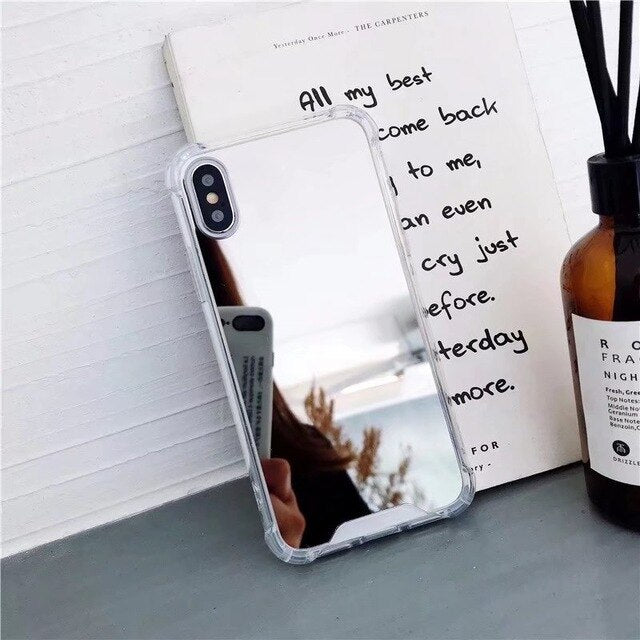 Yesterday Once More - THE CARPENTERS
All my best
come back
to me,
an even
cry just
efore.
terday
more.
FOR
ry -
R O
FRA
NIGH
Fresh, Gree
Top Notes:
Middle Note
Geranium
Base Note
Benzoin, C
DRIZZLE